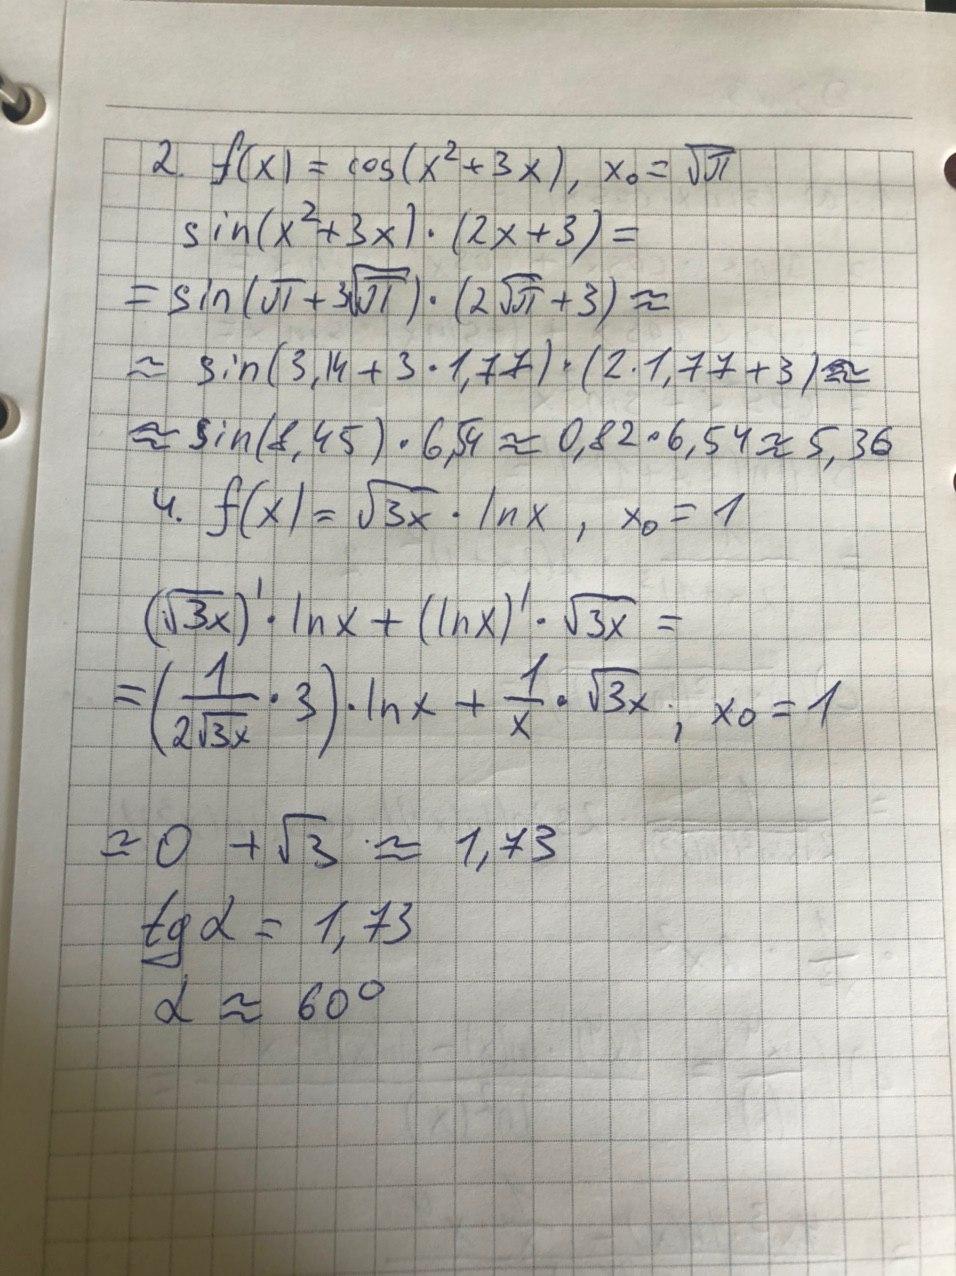 2. f(x) = cos(x²+3x), x₀ = √π
sin(x²+3x)·(2x+3) =
= sin(π+3√π)·(2√π+3) ≈
≈ sin(3,14+3·1,77)·(2·1,77+3) ≈
≈ sin(8,45)·6,54 ≈ 0,82·6,54 ≈ 5,36
4. f(x) = √3x · lnx , x₀ = 1
(√3x)'·lnx + (lnx)'·√3x =
= (1/(2√3x)·3)·lnx + 1/x·√3x ; x₀ = 1
≈ 0 + √3 ≈ 1,73
tgα = 1,73
α ≈ 60°